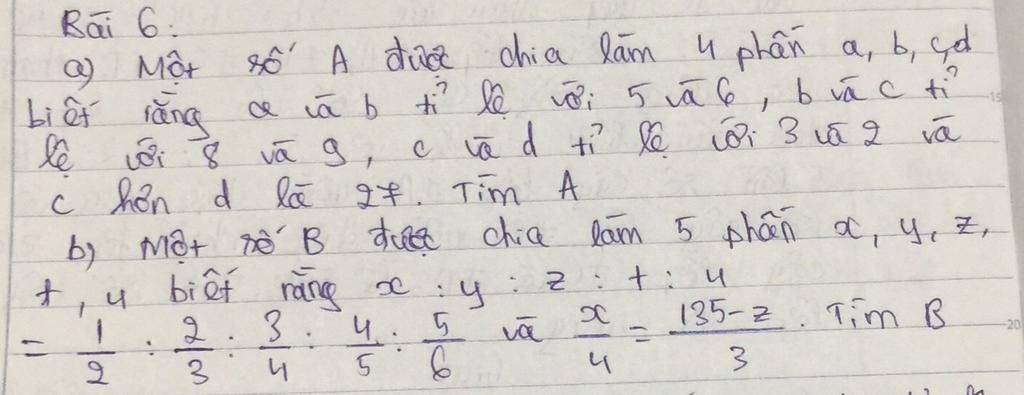 Bài 6:
a) Một số A được chia làm 4 phần a, b, c, d
biết rằng a và b tỉ lệ với 5 và 6, b và c tỉ
lệ với 8 và 9, c và d tỉ lệ với 3 và 2 và
c hơn d là 27. Tìm A
b) Một số B được chia làm 5 phần x, y, z,
t, u biết rằng x : y : z : t : u
= 1/2 : 2/3 : 3/4 : 4/5 : 5/6 và x/4 = (135-z)/3 . Tìm B